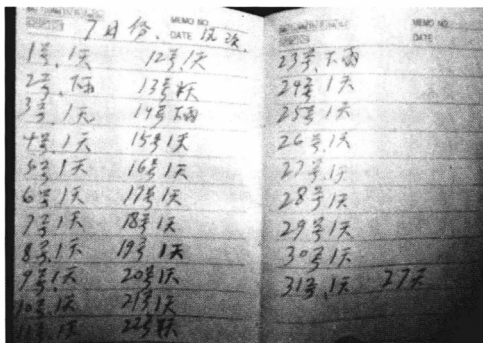 MEMO NO.
7月份.
DATE
1号.1天
2号.下雨
3号.1天
4号.1天
5号.1天
6号.1天
7号.1天
8号.1天
9号.1天
10号.1天
11号.1天
12号1天
13号
14号下雨
15号1天
16号1天
17号1天
18号1天
19号1天
20号1天
21号1天
22号
MEMO NO.
DATE
23号.下雨
24号1天
25号1天
26号.1天
27号1天
28号1天
29号1天
30号1天
31号.1天 27天